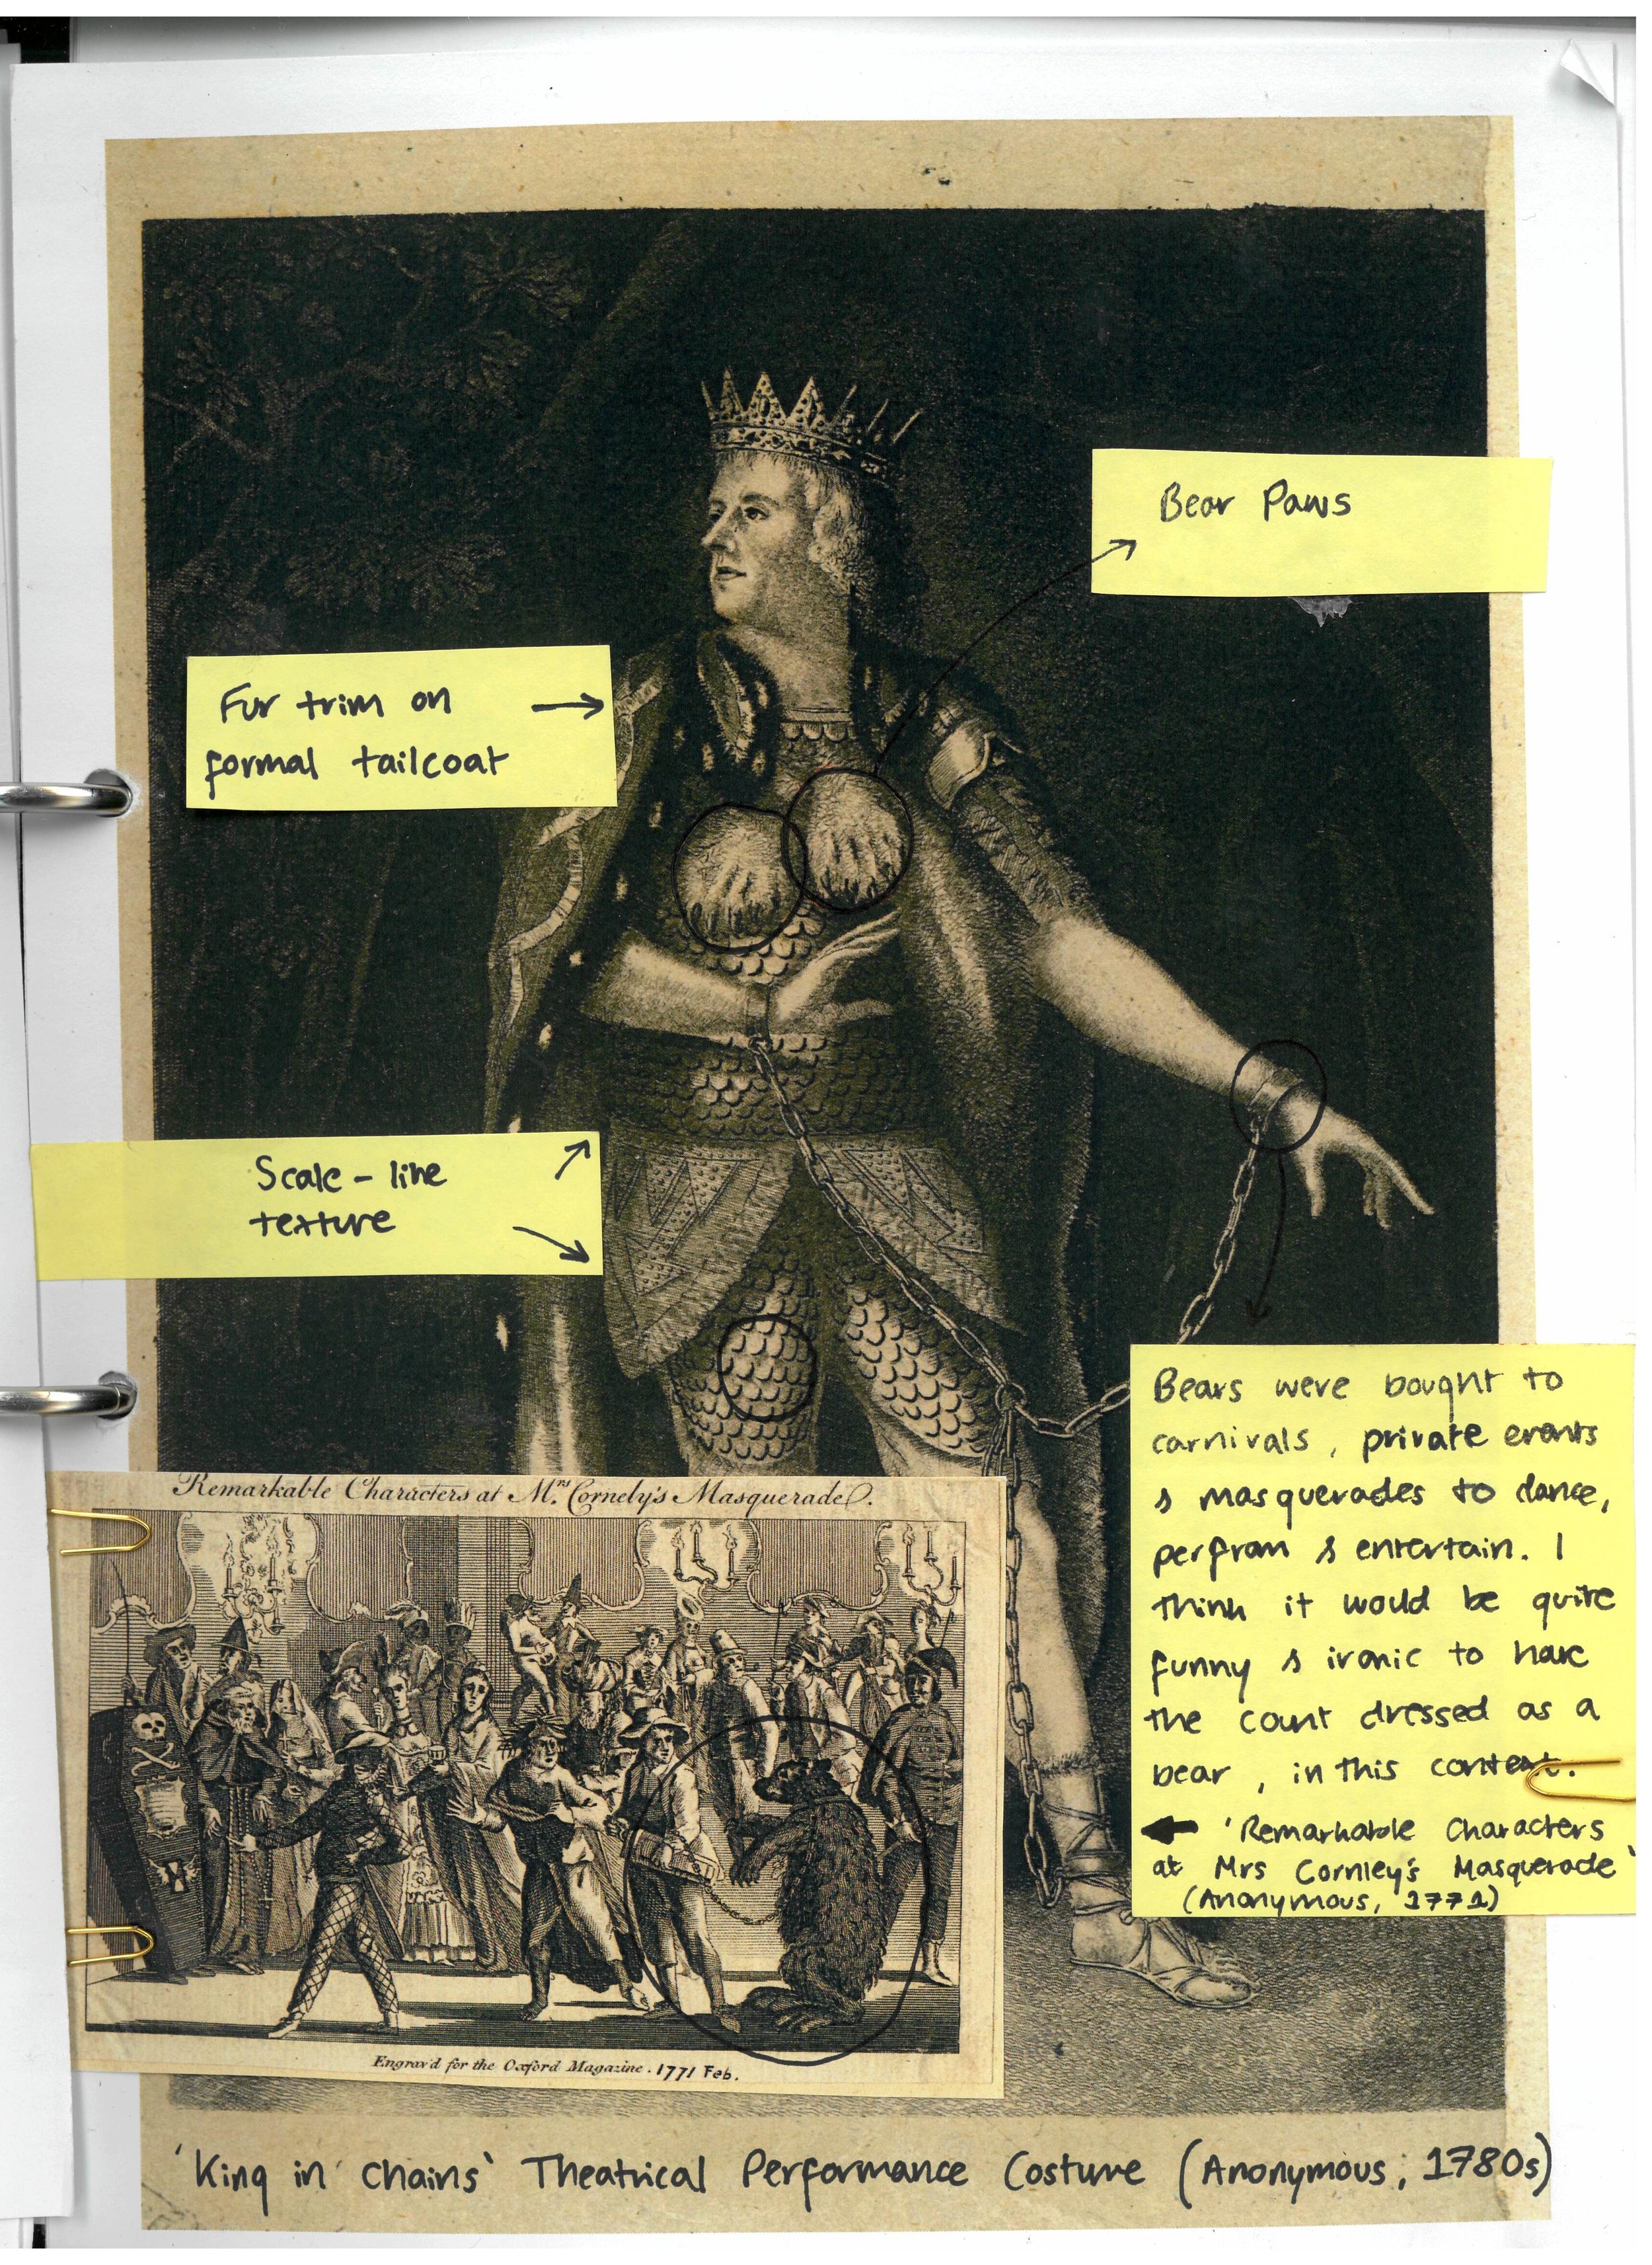 Bear Paws
Fur trim on
formal tailcoat
Scale-like
texture
Bears were bought to
carnivals, private events
& masquerades to dance,
perfram & entertain. I
think it would be quite
funny & ironic to have
the count dressed as a
bear, in this context.
'Remarkable Characters
at Mrs Cornley's Masquerade'
(Anonymous, 1771)
Remarkable Characters at Mrs. Cornely's Masquerade.
Engrav'd for the Oxford Magazine. 1771 Feb.
'King in Chains' Theatrical Performance Costure (Anonymous, 1780s)